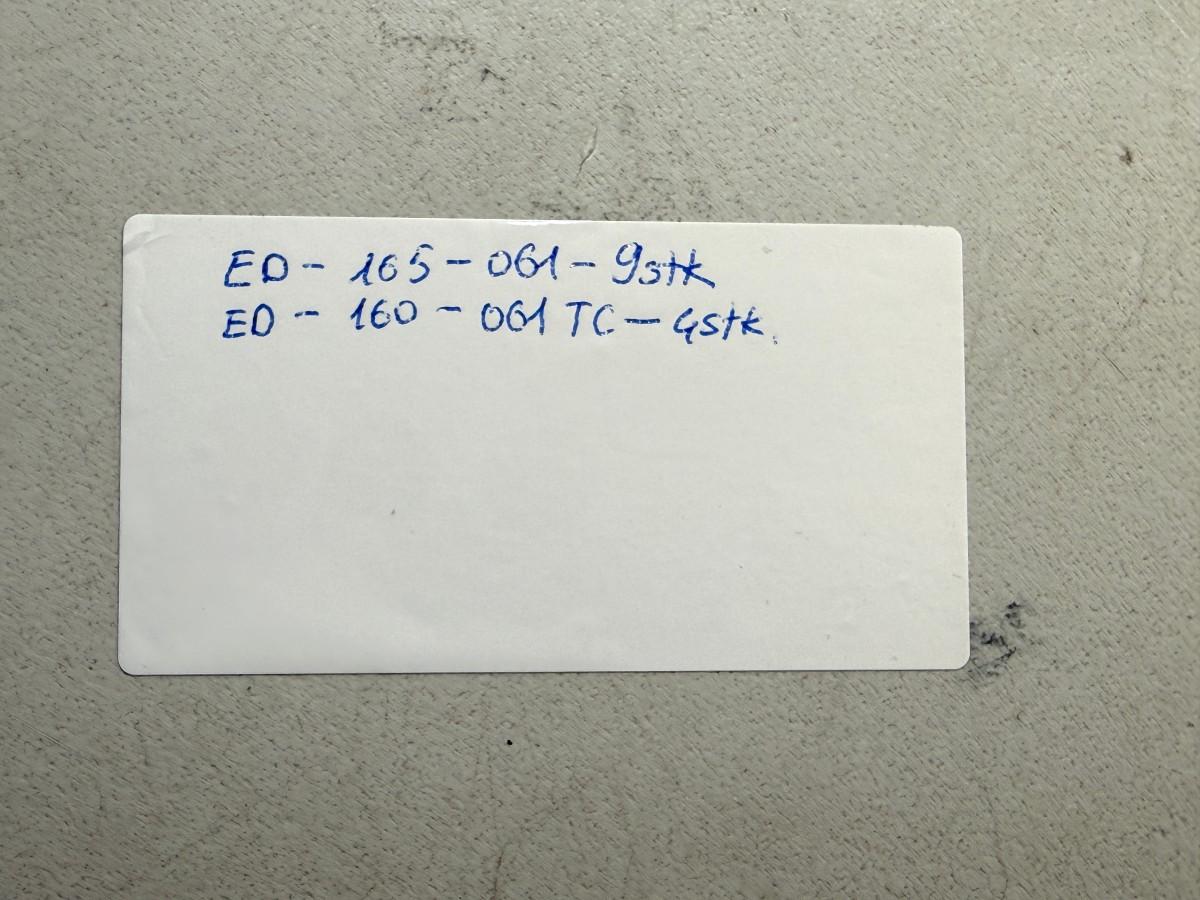 ED - 165 - 061 - 9stk
ED - 160 - 061 TC - 4stk.